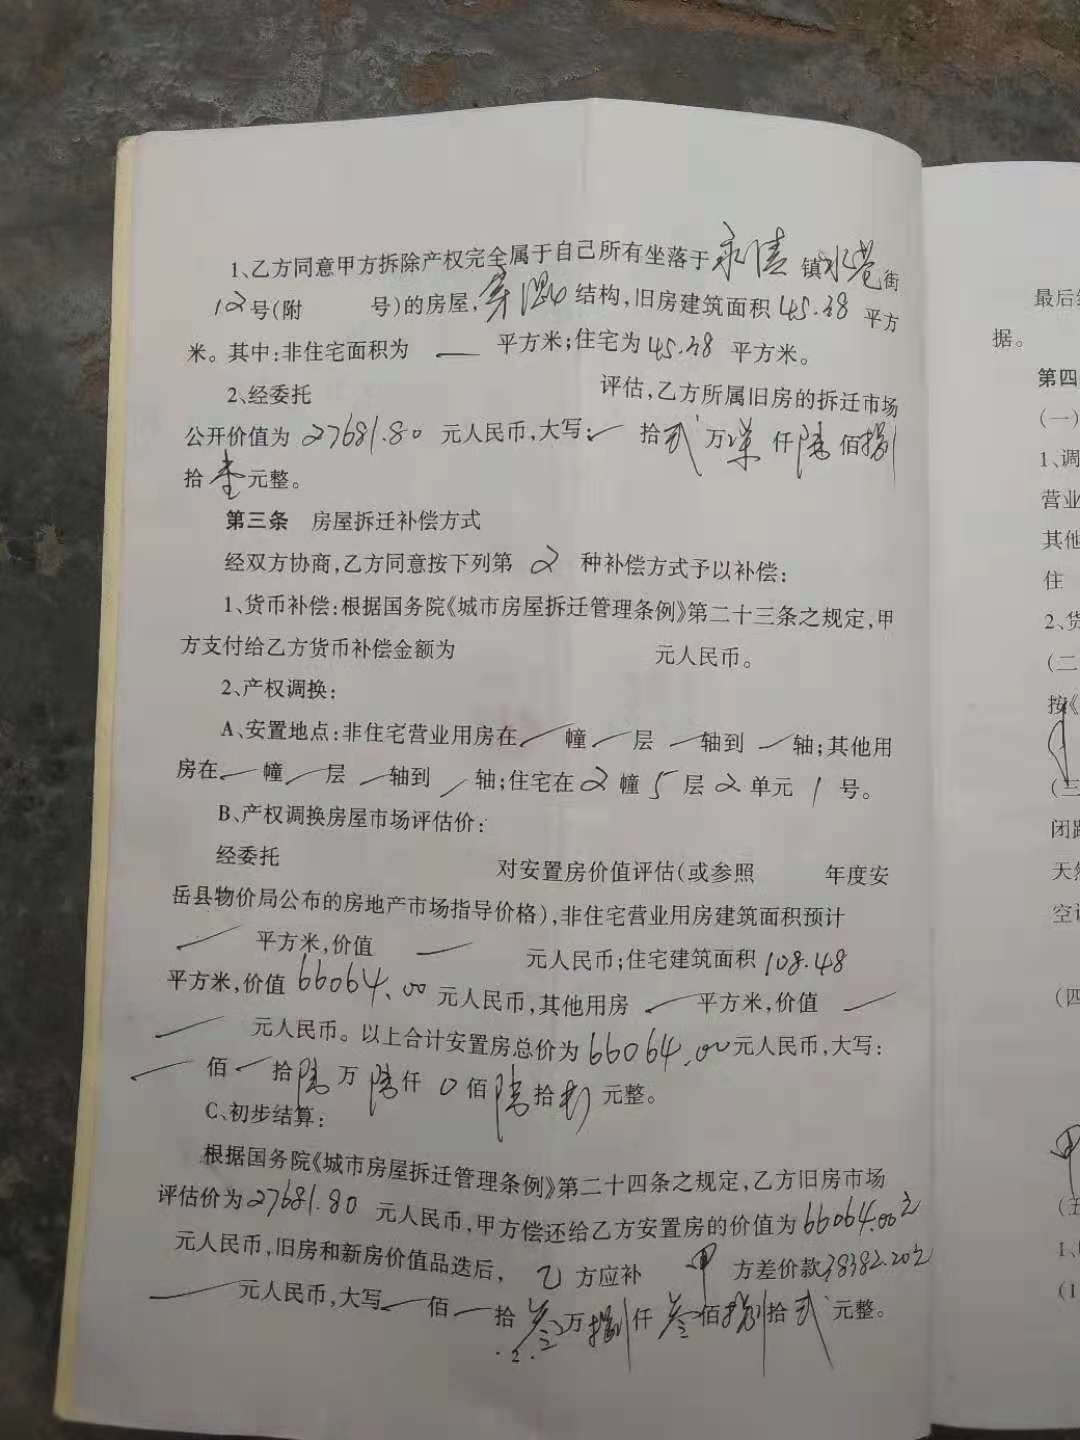 1、乙方同意甲方拆除产权完全属于自己所有坐落于永清镇水巷街
12号(附 号)的房屋,结构,旧房建筑面积45.38平方
米。其中:非住宅面积为 — 平方米;住宅为45.38平方米。
2、经委托 评估,乙方所属旧房的拆迁市场
公开价值为27681.80元人民币,大写: 拾贰万柒仟陆佰捌
拾壹元整。
第三条 房屋拆迁补偿方式
经双方协商,乙方同意按下列第2种补偿方式予以补偿:
1、货币补偿:根据国务院《城市房屋拆迁管理条例》第二十三条之规定,甲
方支付给乙方货币补偿金额为 元人民币。
2、产权调换:
A、安置地点:非住宅营业用房在—幢—层—轴到—轴;其他用
房在—幢—层—轴到—轴;住宅在2幢5层2单元1号。
B、产权调换房屋市场评估价:
经委托 对安置房价值评估(或参照 年度安
岳县物价局公布的房地产市场指导价格),非住宅营业用房建筑面积预计
— 平方米,价值 — 元人民币;住宅建筑面积108.48
平方米,价值66064.00元人民币,其他用房 — 平方米,价值 —
— 元人民币。以上合计安置房总价为66064.00元人民币,大写:
— 佰—拾陆万陆仟0佰陆拾 元整。
C、初步结算:
根据国务院《城市房屋拆迁管理条例》第二十四条之规定,乙方旧房市场
评估价为27681.80元人民币,甲方偿还给乙方安置房的价值为66064.00元
元人民币,旧房和新房价值品迭后,乙方应补甲方差价款38382.20元
— 元人民币,大写—佰—拾叁万捌仟叁佰捌拾贰元整。
·2·
最后
据。
第四
(一)
1、调
营业
其他
住
2、货
(二
按《
(三
闭路
天然
空调
(四
甲
(五
1、
(1